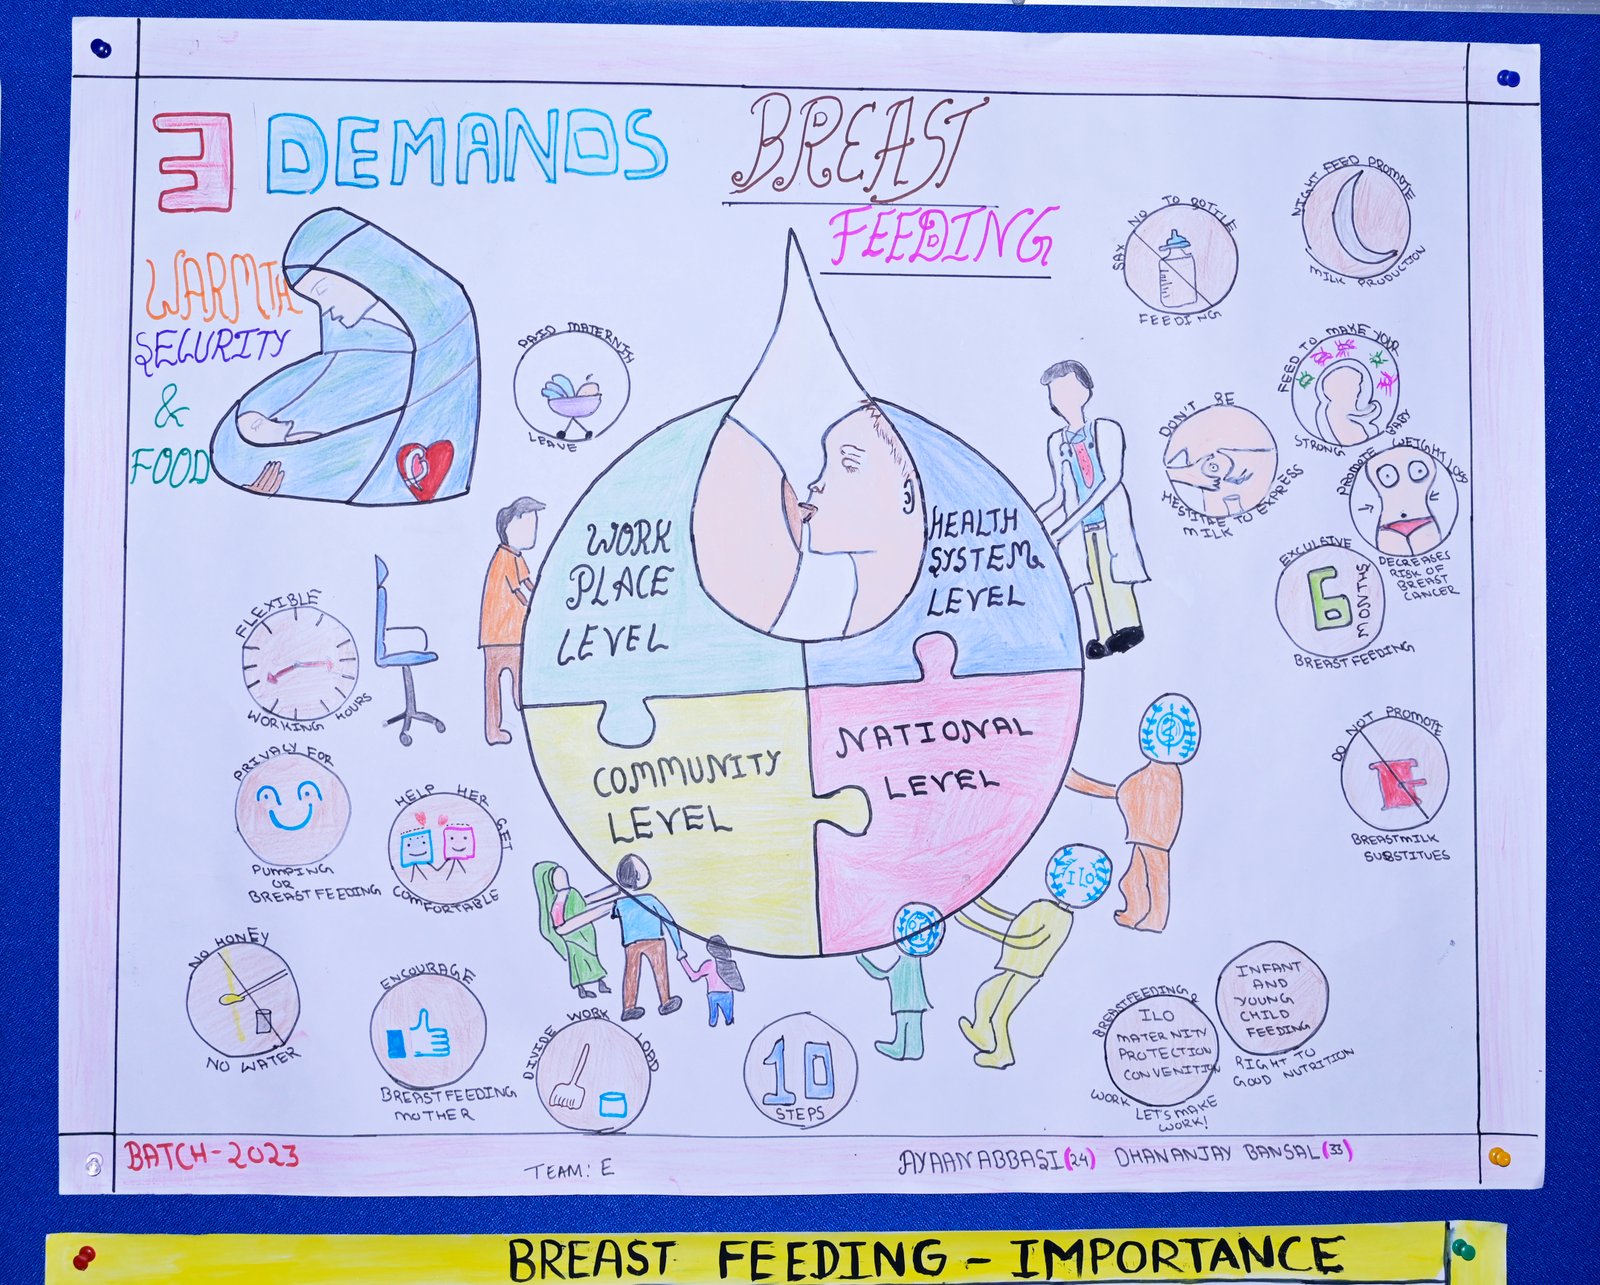 3 DEMANDS
BREAST
FEEDING
WARMTH
SECURITY
&
FOOD
PAID MATERNITY
LEAVE
SAY NO TO BOTTLE
FEEDING
NIGHT FEED PROMOTE
MILK PRODUCTION
FEED TO MAKE YOUR
BABY
STRONG
DON'T BE
HESTITAE TO EXPRESS
MILK
PROMOTE WEIGHT LOSS
DECREASES
RISK OF
BREAST
CANCER
EXCULSIVE
6 MONTHS
BREASTFEEDING
WORK
PLACE
LEVEL
HEALTH
SYSTEM
LEVEL
COMMUNITY
LEVEL
NATIONAL
LEVEL
FLEXIBLE
WORKING HOURS
PRIVACY FOR
PUMPING
OR
BREASTFEEDING
HELP HER GET
COMFORTABLE
DO NOT PROMOTE
BREASTMILK
SUBSTITUES
ILO
NO HONEY
NO WATER
ENCOURAGE
BREASTFEEDING
MOTHER
DIVIDE WORK LOAD
10
STEPS
BREASTFEEDING &
WORK
ILO
MATERNITY
PROTECTION
CONVENITION
LET'S MAKE
WORK!
INFANT
AND
YOUNG
CHILD
FEEDING
RIGHT TO
GOOD NUTRITION
BATCH-2023
TEAM: E
AYAAN ABBASI (24) DHANANJAY BANSAL (33)
BREAST FEEDING - IMPORTANCE